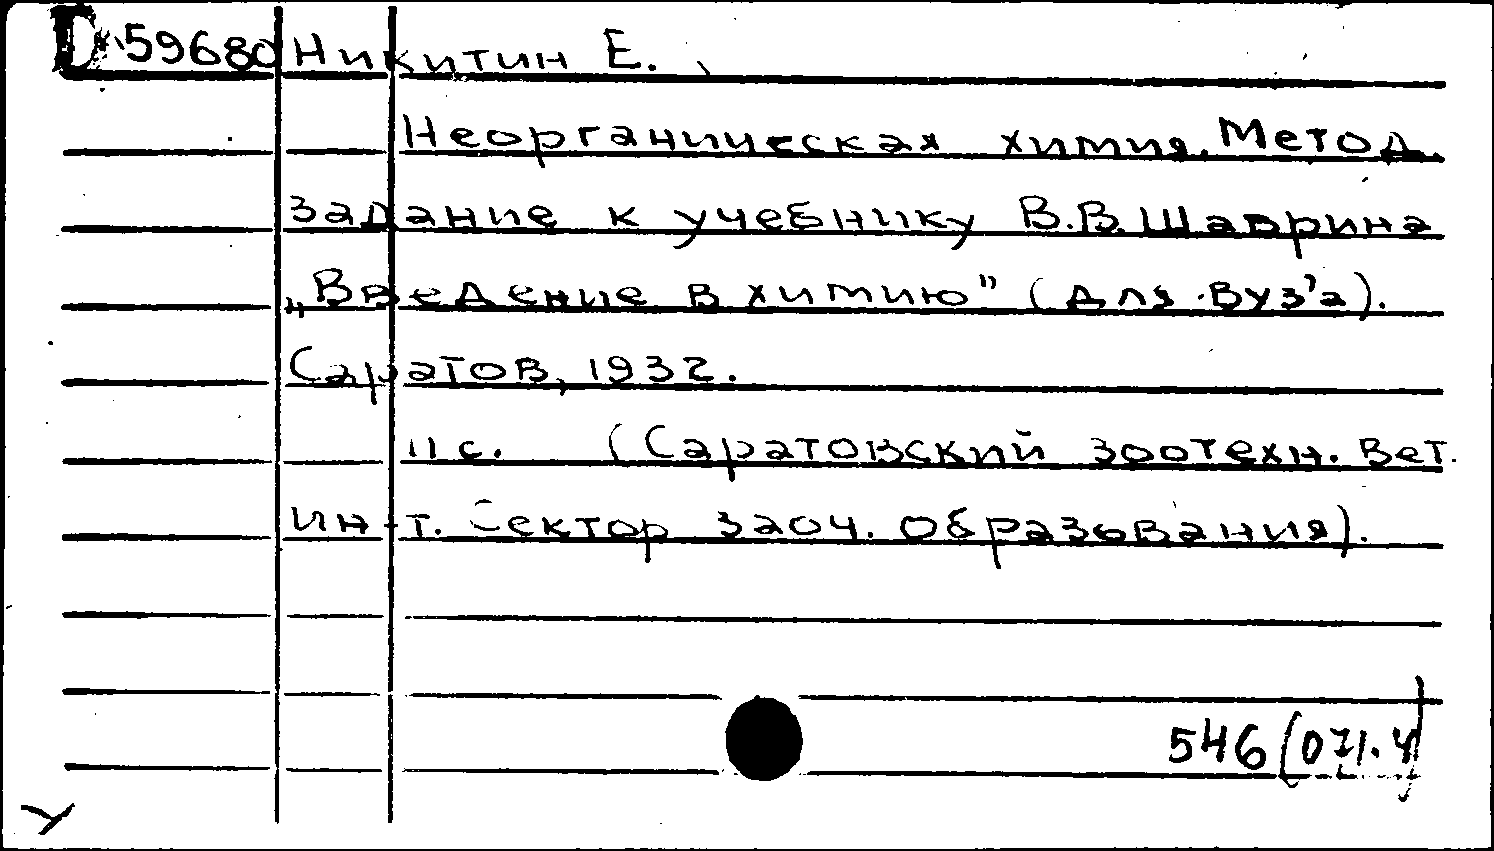 D 59680 Никитин Е.
Неорганическая химия. Метод.
задание к учебнику В.В. Шаврина
„Введение в химию" (для вуз'а).
Саратов, 1932.
11 с. (Саратовский зоотехн. Вет.
ин-т. Сектор заоч. образования).
546(071.4)
У